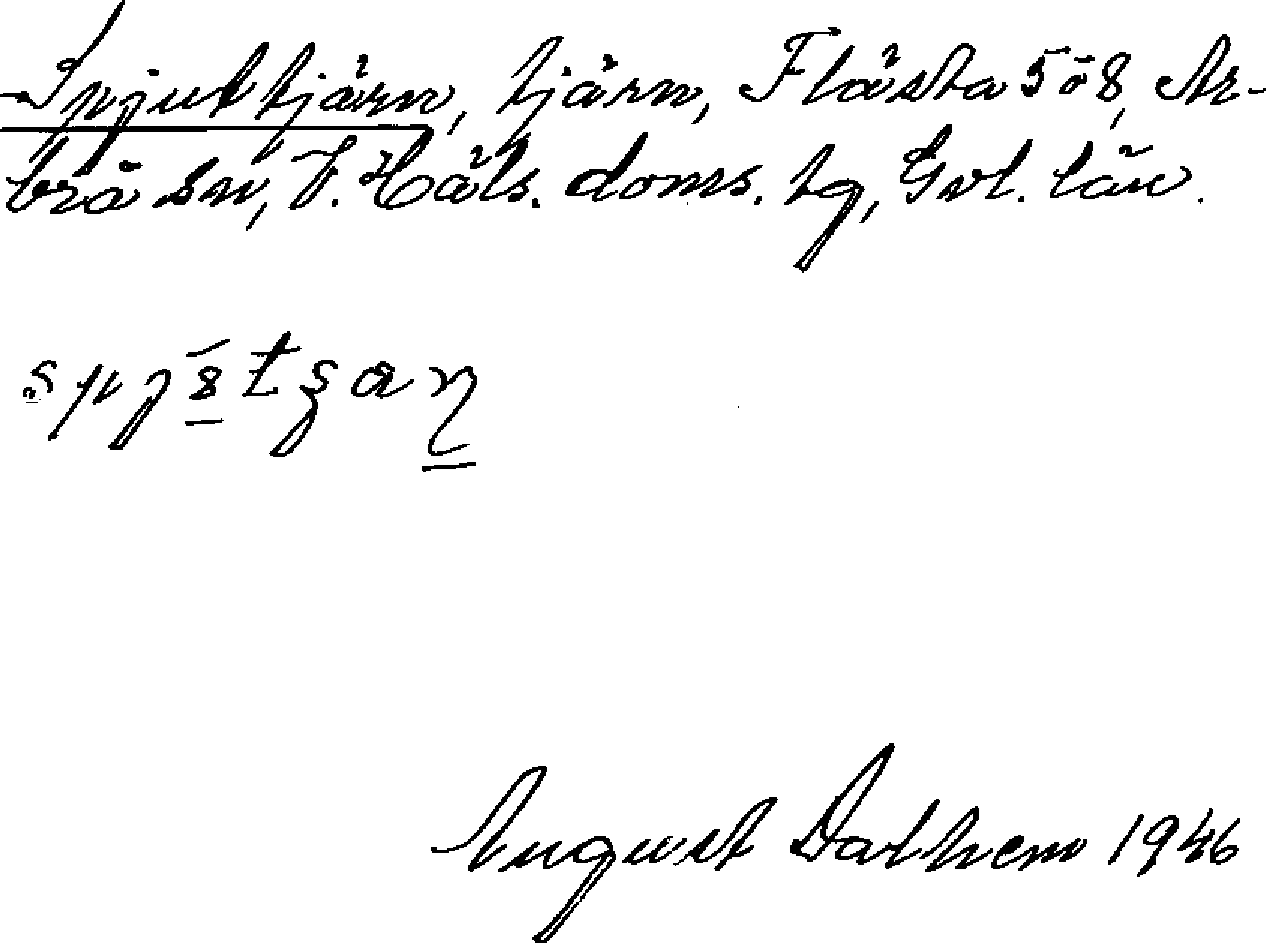 Spjuttjärn, tjärn, Flästa 5 o 8, Ar-
brå sn, V. Häls. doms. tg, Gvl. län.
August Dalhem 1946